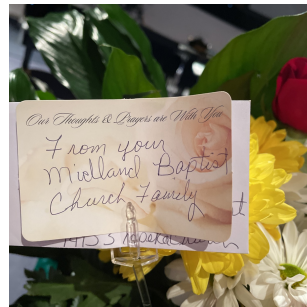 Our Thoughts & Prayers are With You
From your
Midland Baptist
Church Family